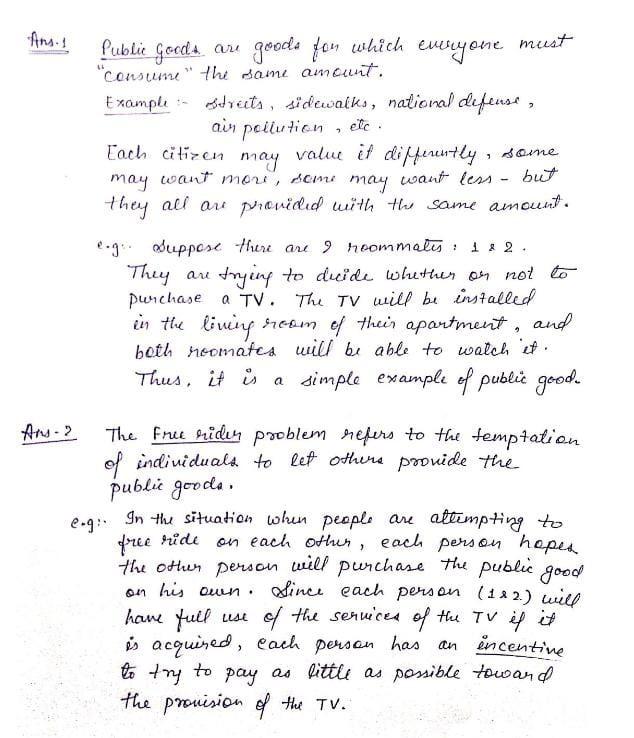 Ans.1 Public Goods are goods for which everyone must
"consume" the same amount.
Example :- streets, sidewalks, national defense,
air pollution, etc.
Each citizen may value it differently, some
may want more, some may want less - but
they all are provided with the same amount.
e.g:- Suppose there are 2 roommates : 1 & 2.
They are trying to decide whether or not to
purchase a TV. The TV will be installed
in the living room of their apartment, and
both roomates will be able to watch it.
Thus, it is a simple example of public good.
Ans-2 The Free rider problem refers to the temptation
of individuals to let others provide the
public goods.
e.g:- In the situation when people are attempting to
free ride on each other, each person hopes
the other person will purchase the public good
on his own. Since each person (1&2) will
have full use of the services of the TV if it
is acquired, each person has an incentive
to try to pay as little as possible toward
the provision of the TV.